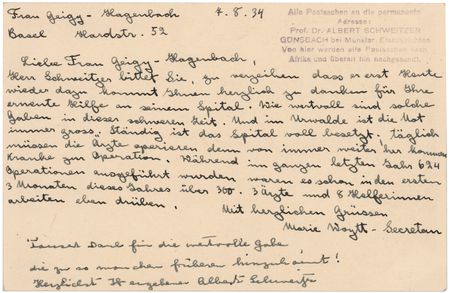 Frau Geigy-Hagenbach 4.8.34
Basel Hardstr. 52
Alle Postsachen an die permanente
Adresse:
Prof. Dr. ALBERT SCHWEITZER
GÜNSBACH bei Münster, Elsass
Von hier werden alle Postsachen nach
Afrika und überall hin nachgesandt.
Liebe Frau Geigy-Hagenbach,
Herr Schweitzer bittet Sie, zu verzeihen dass er erst heute
wieder dazu kommt Ihnen herzlich zu danken für Ihre
erneute Hilfe an seinem Spital. Wie wertvoll sind solche
Gaben in dieser schweren Zeit. Und im Urwalde ist die Not
immer gross. Ständig ist das Spital voll besetzt. Täglich
müssen die Ärzte operieren denn von immer weiter her kommen
Kranke zur Operation. Während im ganzen letzten Jahr 624
Operationen ausgeführt wurden waren es schon in den ersten
3 Monaten dieses Jahres über 300. 3 Ärzte und 8 Helferinnen
arbeiten eben drüben.
Mit herzlichen Grüssen
Marie Woytt-Secretan
Tausend Dank für die wertvolle Gabe,
die zu so manchen früheren hinzukommt!
Herzlichst Ihr ergebener Albert Schweitzer